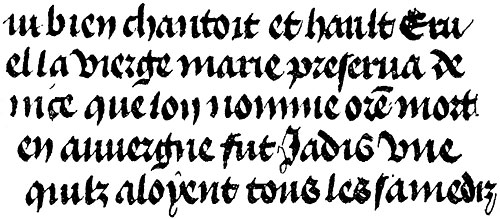 iu bien chantoit et hault Eru
el la vierge marie preserua de
nice que lon nomme orē mort
en auuergne fut Jadis vne
quilz aloyent tous les samediz